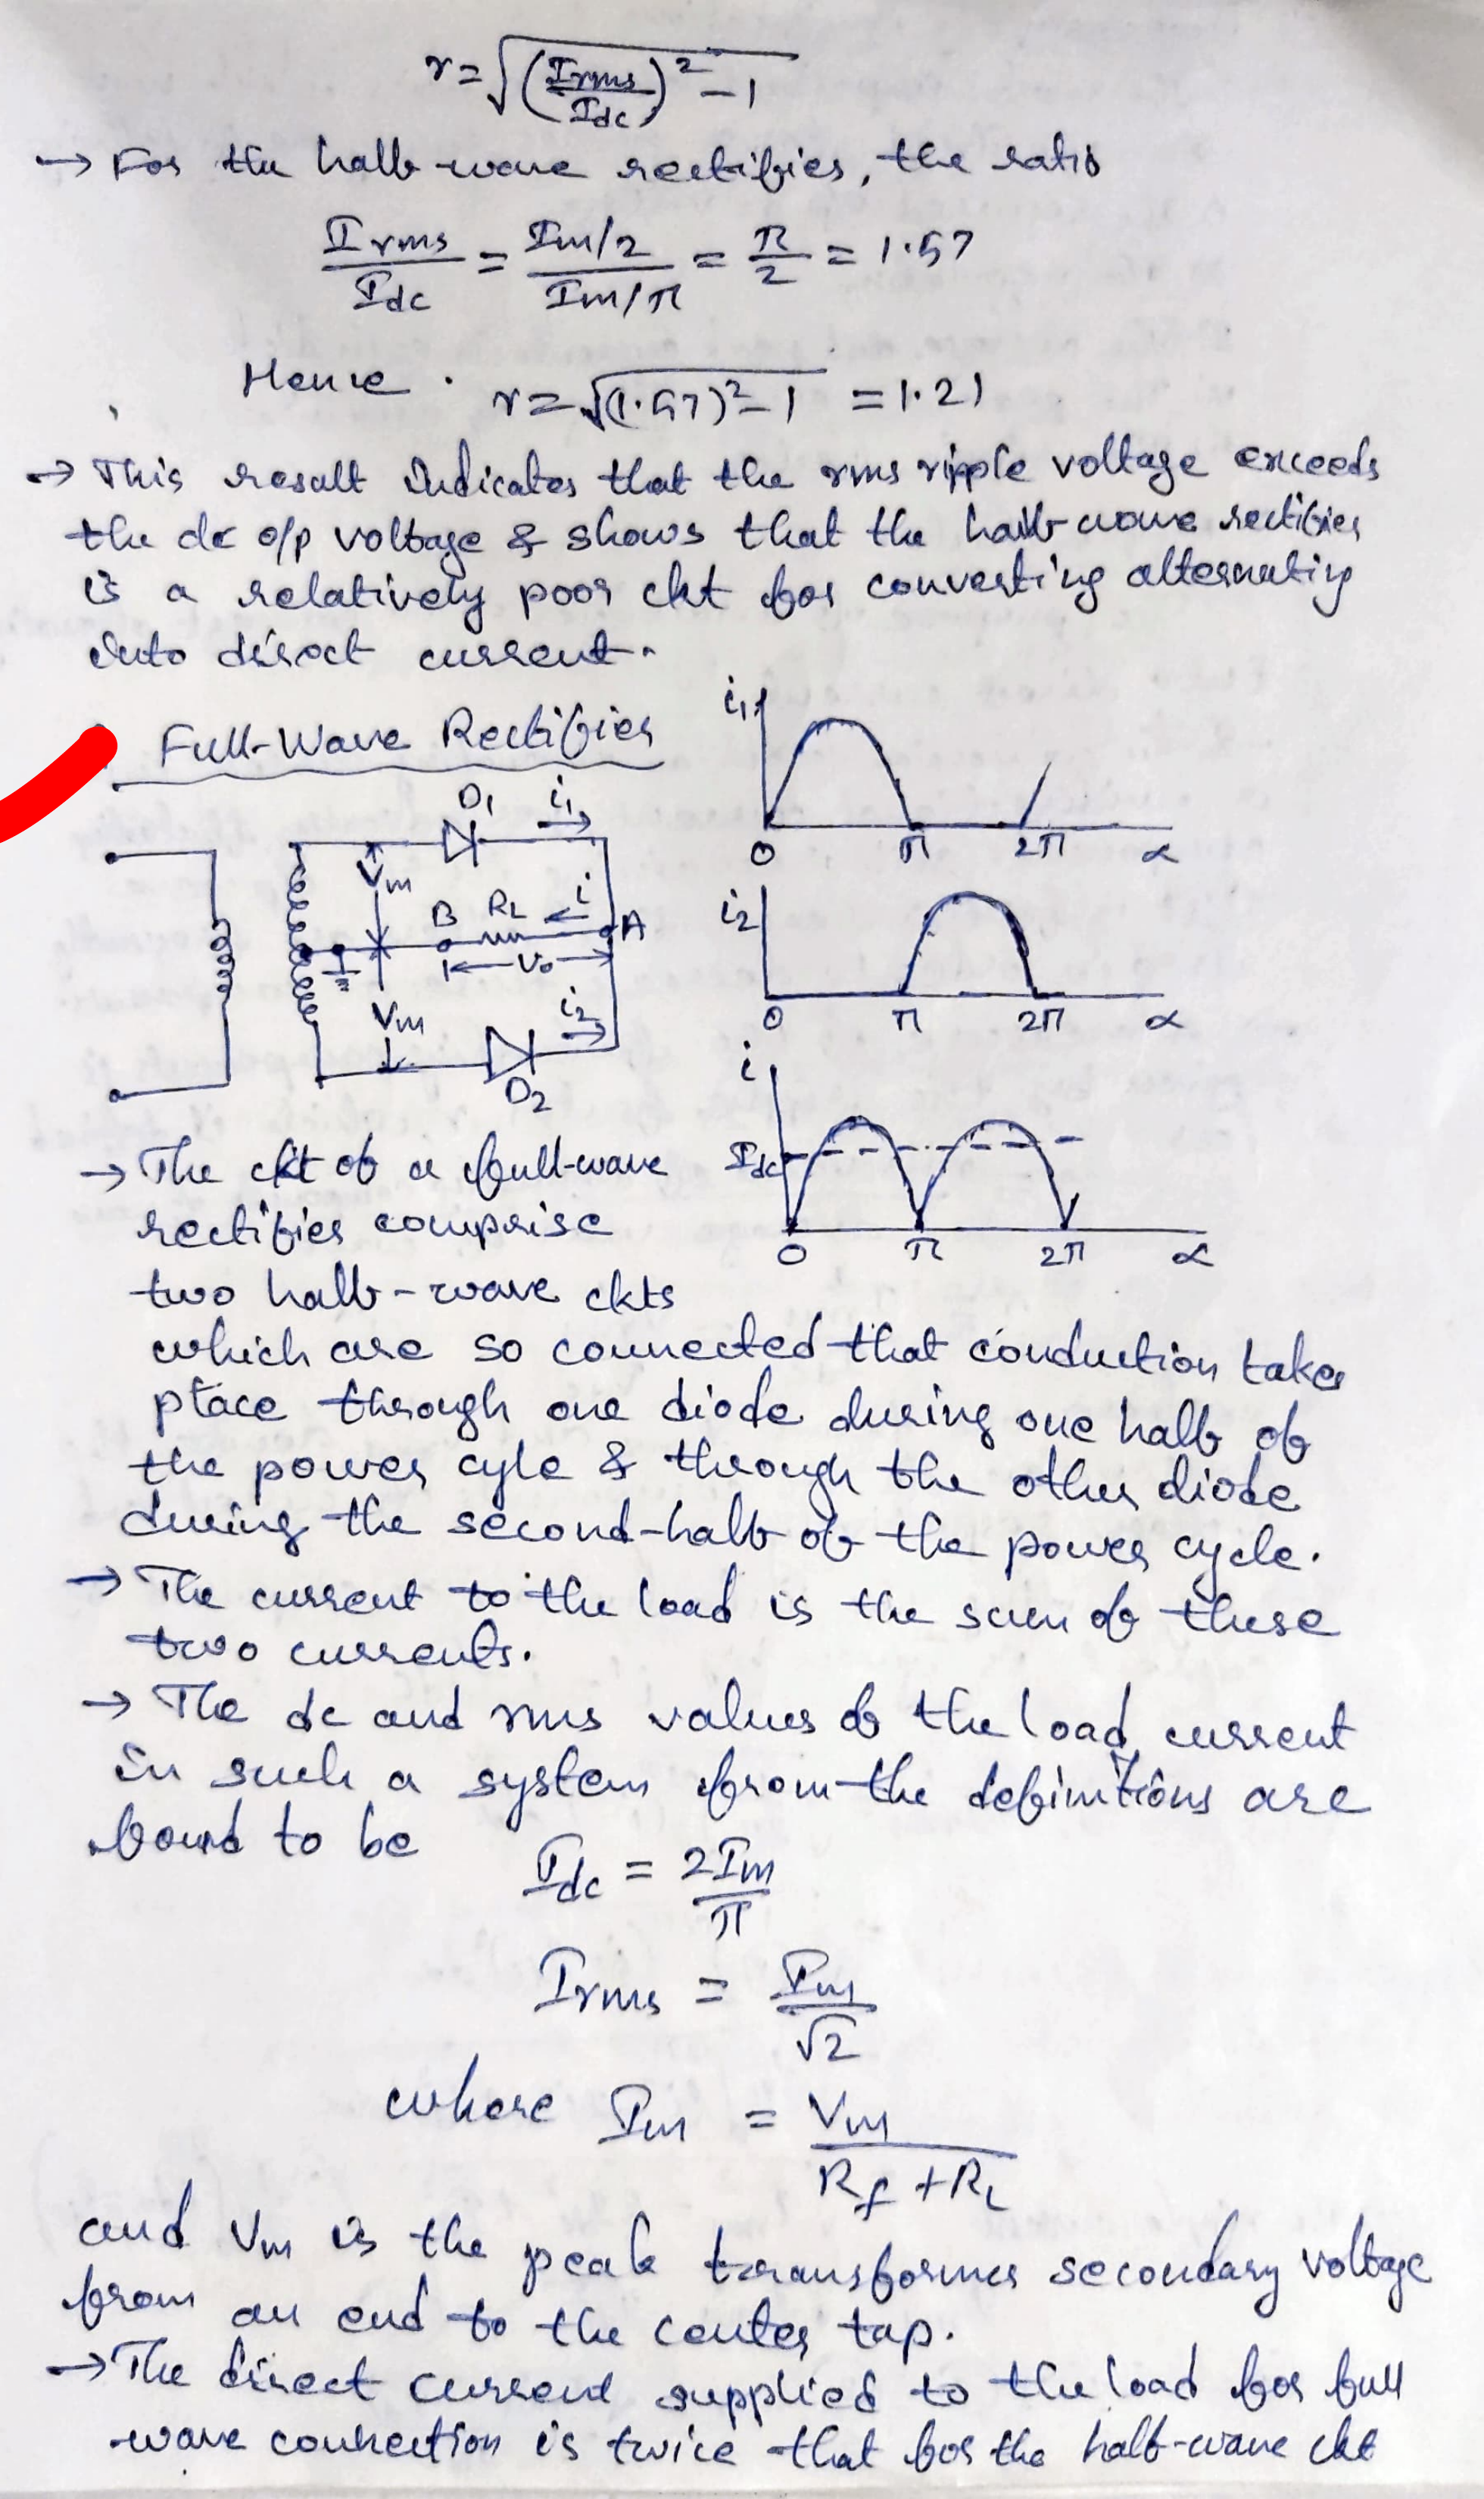 r = √((Irms/Idc)² - 1)
→ For the half-wave rectifier, the ratio
Irms/Idc = (Im/2)/(Im/π) = π/2 = 1.57
Hence . r = √((1.57)² - 1) = 1.21
→ This result indicates that the rms ripple voltage exceeds
the dc o/p voltage & shows that the half-wave rectifier
is a relatively poor ckt for converting alternating
into direct current.
Full-Wave Rectifier
D1 i1
Vm
B RL i A
Vo
Vm i2
D2
i1
0 π 2π α
i2
0 π 2π α
i
Idc
0 π 2π α
→ The ckt of a full-wave
rectifier comprise
two half-wave ckts
which are so connected that conduction takes
place through one diode during one half of
the power cyle & through the other diode
during the second-half of the power cycle.
→ The current to the load is the sum of these
two currents.
→ The dc and rms values of the load current
in such a system from the definitions are
found to be
Idc = 2Im/π
Irms = Im/√2
where Im = Vm/(Rf + RL)
and Vm is the peak transformer secondary voltage
from an end to the center tap.
→ The direct current supplied to the load for full
wave connection is twice that for the half-wave ckt